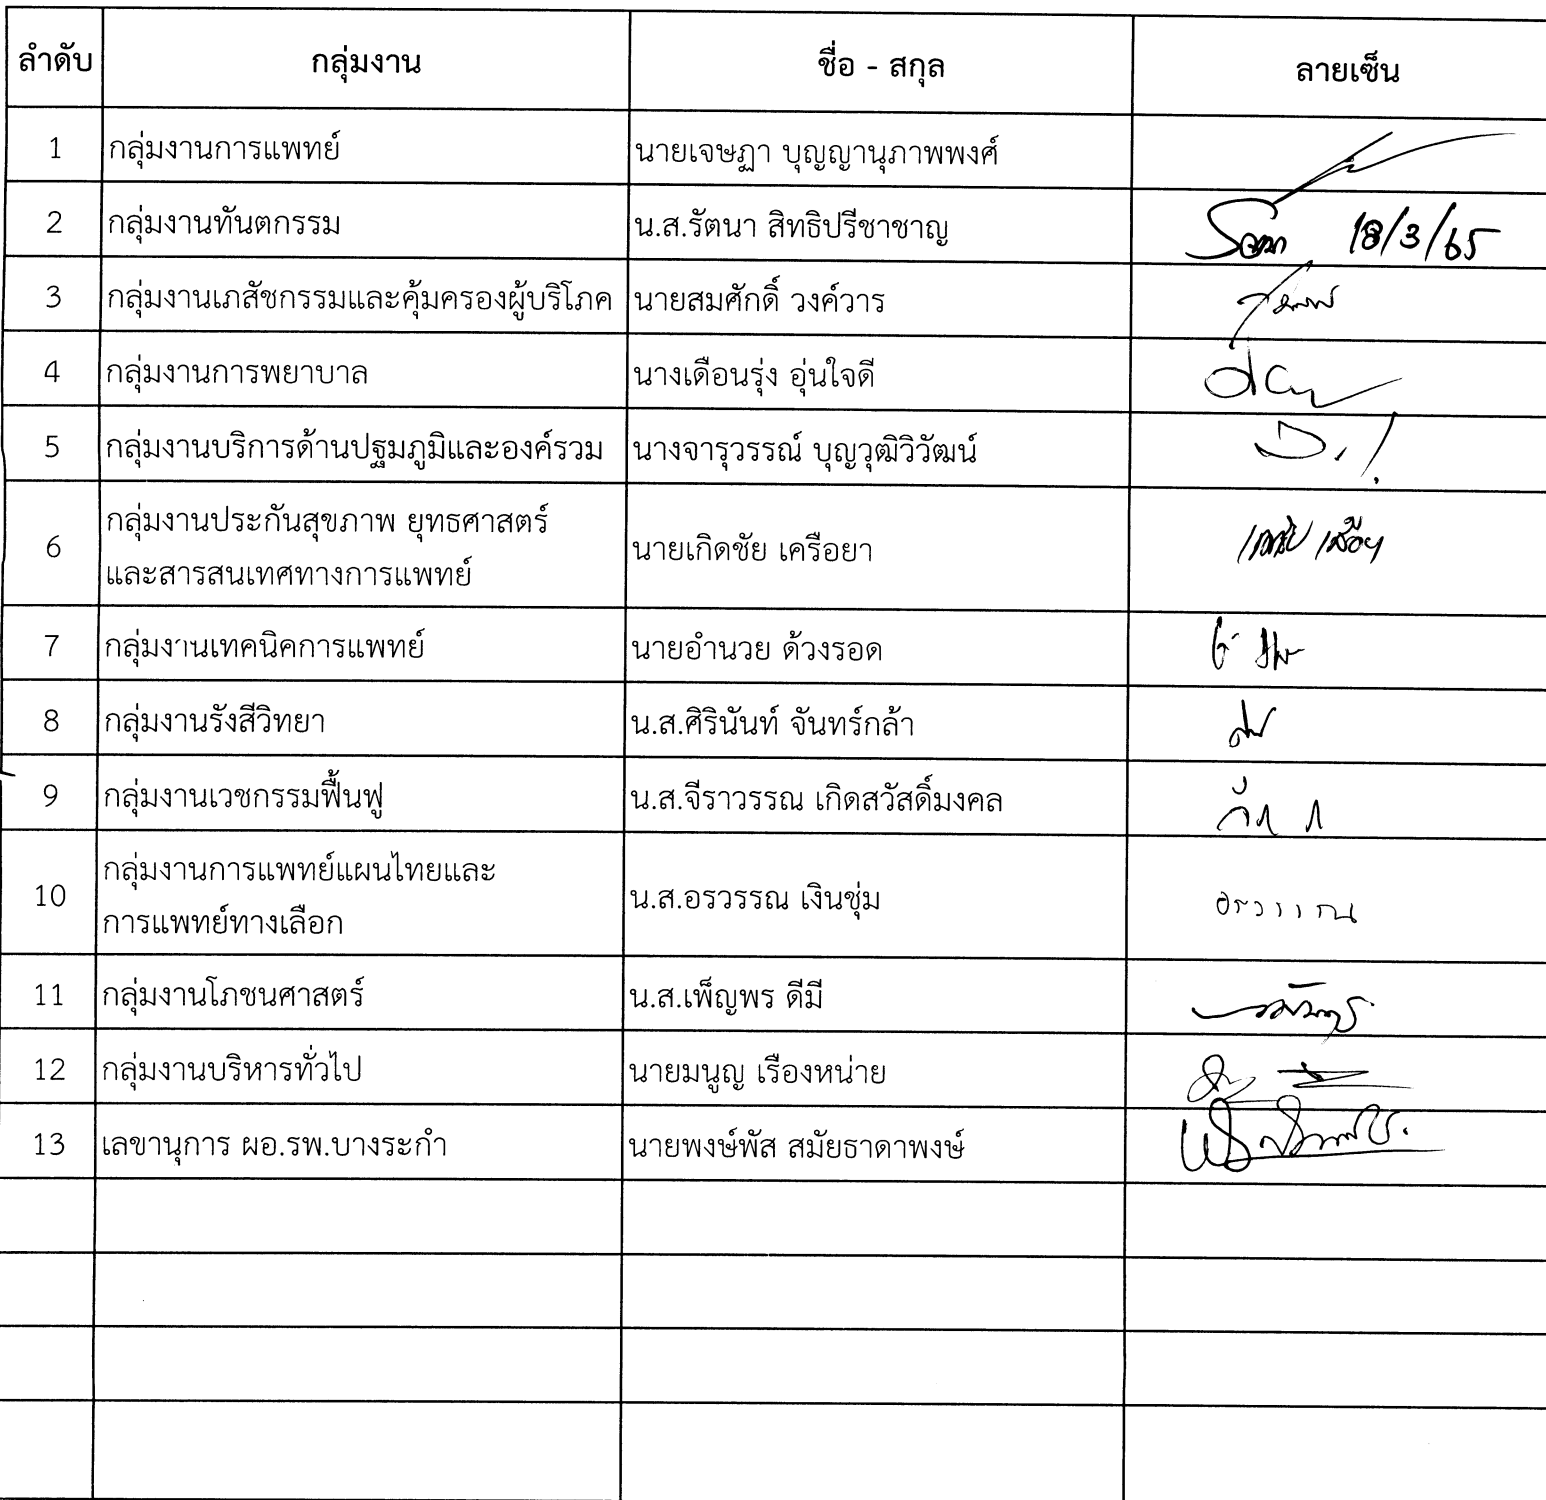 ลำดับ กลุ่มงาน ชื่อ - สกุล ลายเซ็น
1 กลุ่มงานการแพทย์ นายเจษฎา บุญญานุภาพพงศ์
2 กลุ่มงานทันตกรรม น.ส.รัตนา สิทธิปรีชาชาญ 18/3/65
3 กลุ่มงานเภสัชกรรมและคุ้มครองผู้บริโภค นายสมศักดิ์ วงค์วาร
4 กลุ่มงานการพยาบาล นางเดือนรุ่ง อุ่นใจดี
5 กลุ่มงานบริการด้านปฐมภูมิและองค์รวม นางจารุวรรณ์ บุญวุฒิวิวัฒน์
กลุ่มงานประกันสุขภาพ ยุทธศาสตร์
6 นายเกิดชัย เครือยา
และสารสนเทศทางการแพทย์
7 กลุ่มงานเทคนิคการแพทย์ นายอำนวย ด้วงรอด
8 กลุ่มงานรังสีวิทยา น.ส.ศิรินันท์ จันทร์กล้า
9 กลุ่มงานเวชกรรมฟื้นฟู น.ส.จีราวรรณ เกิดสวัสดิ์มงคล
กลุ่มงานการแพทย์แผนไทยและ
10 น.ส.อรวรรณ เงินชุ่ม อรวรรณ
การแพทย์ทางเลือก
11 กลุ่มงานโภชนศาสตร์ น.ส.เพ็ญพร ดีมี
12 กลุ่มงานบริหารทั่วไป นายมนูญ เรืองหน่าย
13 เลขานุการ ผอ.รพ.บางระกำ นายพงษ์พัส สมัยธาดาพงษ์